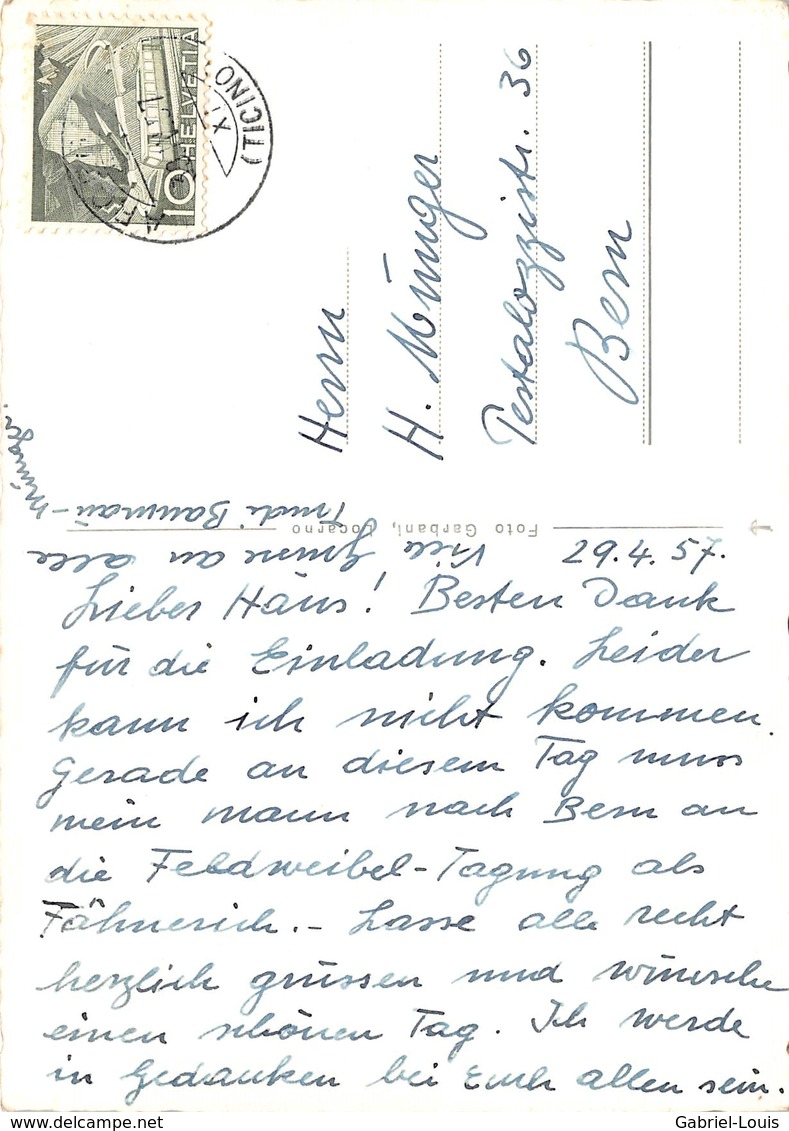 HELVETIA
10
(TICINO)
Herrn
H. Münger
Pestalozzistr. 36
Bern
Foto Garbani, Locarno
29.4.57.
Lieber Hans! Besten Dank
für die Einladung. Leider
kann ich nicht kommen.
Gerade an diesem Tag muss
mein mann nach Bern an
die Feldweibel-Tagung als
Fähnerich.- Lasse alle recht
herzlich grüssen und wünsche
einen schönen Tag. Ich werde
in Gedanken bei Euch allen sein.
Viele Grüsse an alle
Trudi Baumann-
Münger.
Gabriel-Louis